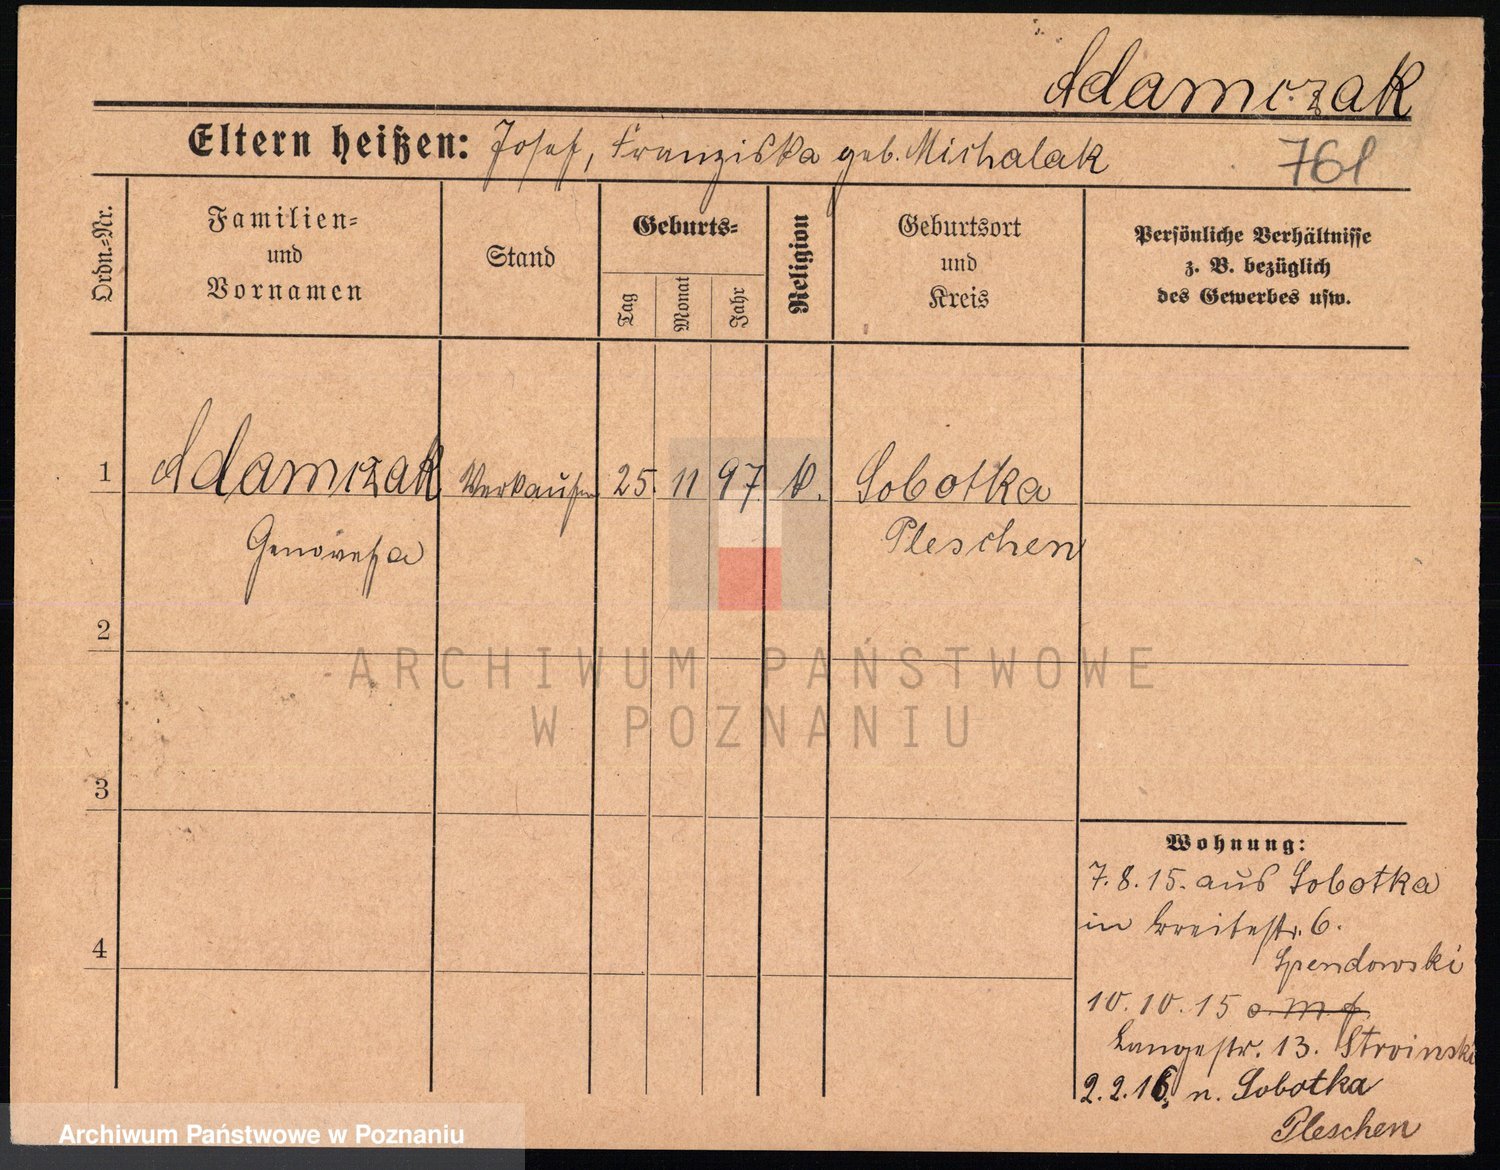 Adamczak
Eltern heißen: Josef, Franziska geb. Michalak
761
Ordn.-Nr.
Familien-
und
Vornamen
Stand
Geburts-
Tag
Monat
Jahr
Religion
Geburtsort
und
Kreis
Persönliche Verhältnisse
z. B. bezüglich
des Gewerbes usw.
1 Adamczak Verkäuferin 25. 11 97. k. Sobotka
Genovefa Pleschen
2
ARCHIWUM PAŃSTWOWE
W POZNANIU
3
Wohnung:
7. 8. 15. aus Sobotka
in Breitestr. 6.
Spendowski
4
10. 10. 15 o. M. f.
Langestr. 13. Stroinski
2. 2. 16. n. Sobotka
Pleschen
Archiwum Państwowe w Poznaniu